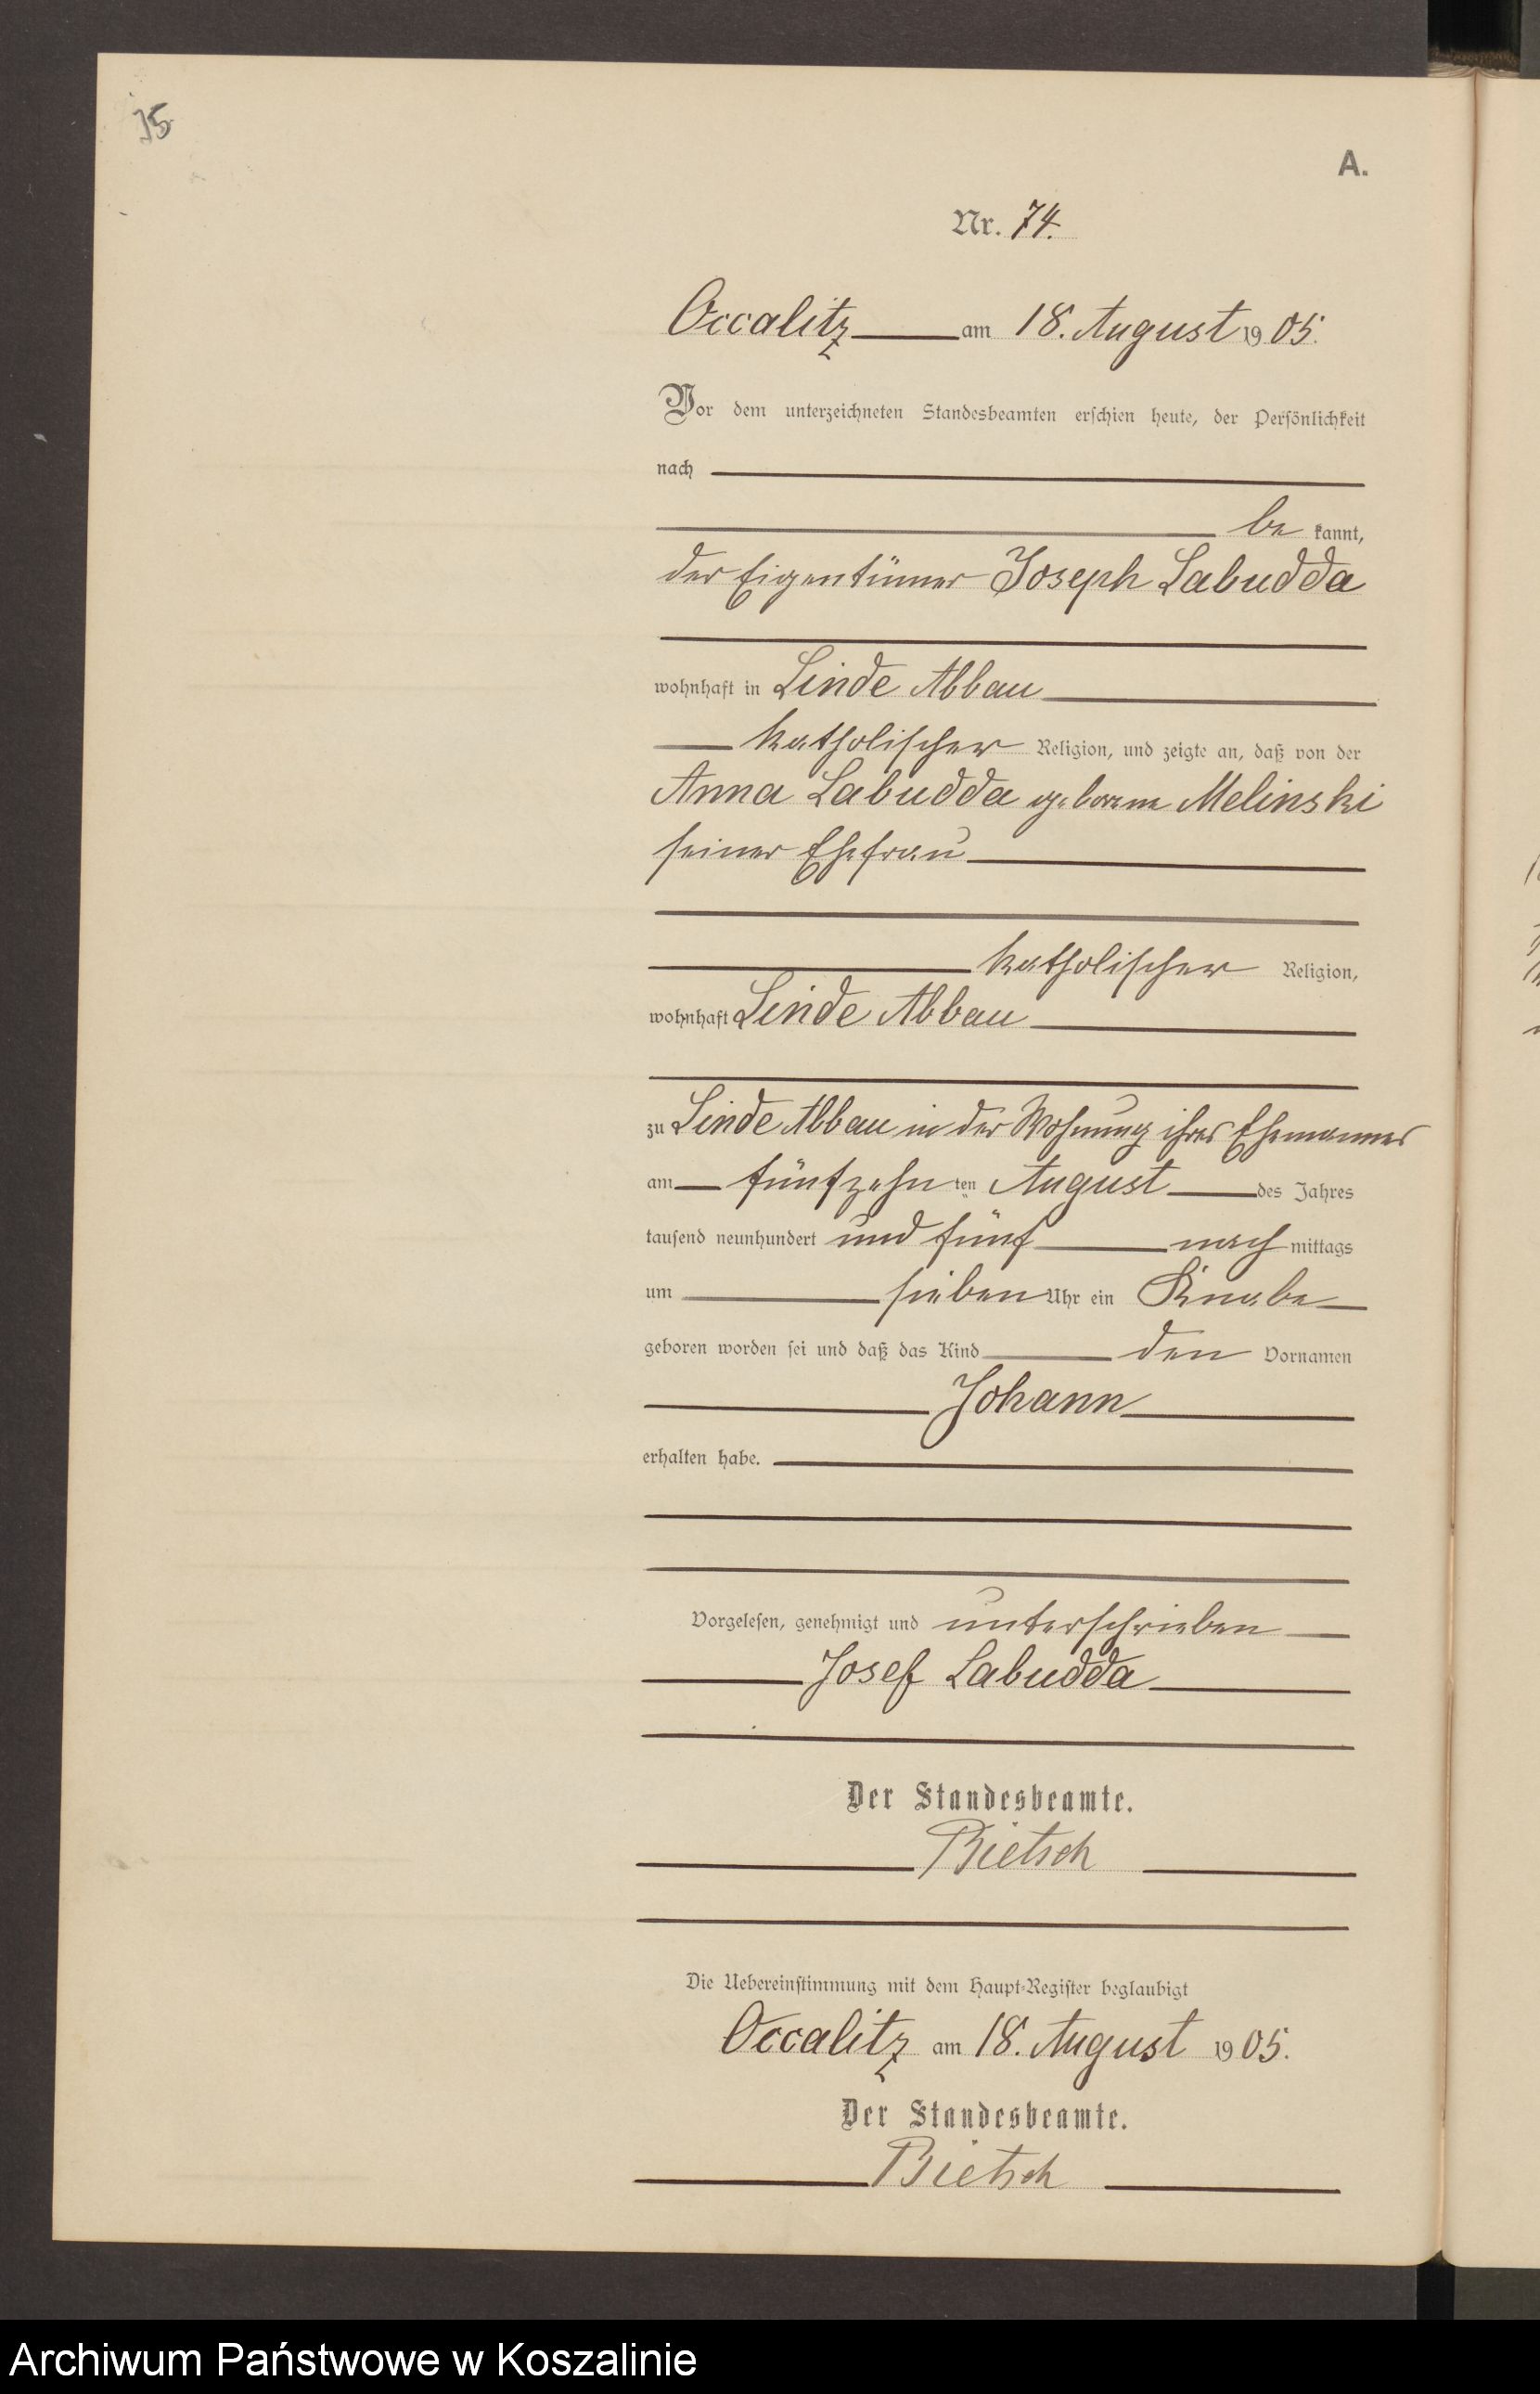 75
A.
Nr. 74.
Occalitz am 18. August 1905.
Vor dem unterzeichneten Standesbeamten erschien heute, der Persönlichkeit
nach
be kannt,
der Eigentümer Joseph Labudda
wohnhaft in Linde Abbau
katholischer Religion, und zeigte an, daß von der
Anna Labudda geborene Melinski
seiner Ehefrau
katholischer Religion,
wohnhaft Linde Abbau
zu Linde Abbau in der Wohnung ihres Ehemannes
am fünfzehn ten August des Jahres
tausend neunhundert und fünf nach mittags
um sieben Uhr ein Knabe
geboren worden sei und daß das Kind den Vornamen
Johann
erhalten habe.
Vorgelesen, genehmigt und unterschrieben
Josef Labudda
Der Standesbeamte.
Bietsch
Die Uebereinstimmung mit dem Haupt-Register beglaubigt
Occalitz am 18. August 1905.
Der Standesbeamte.
Bietsch
Archiwum Państwowe w Koszalinie